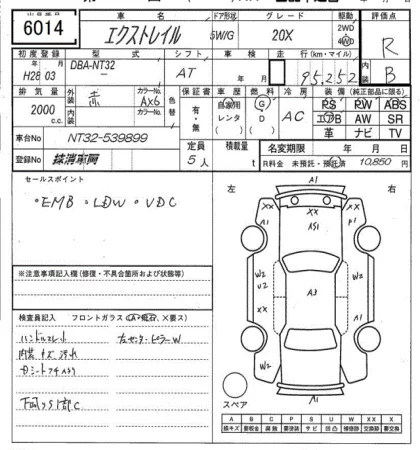 6014
車名 ドア形状 グレード 駆動 評価点
エクストレイル 5W/G 20X 2WD 4WD R
初度登録 型式 シフト 車検 走行(km・マイル) 内装
H28 03 DBA-NT32 AT 年 月 95,252 B
排気量 外装 カラーNo. 色替 保証書 車歴 燃料 冷房 装備(純正部品に限る)
2000 c.c. 内装 赤 AX6 カラーNo. 有・無 自家用 レンタ ( ) G D ( ) AC PS PW ABS
エアB AW SR
革 ナビ TV
車台No NT32-539899 定員 5人 積載量 t 名変期限 年 月 日
登録No 抹消車両 R料金 未預託・預託済 10,850 円
セールスポイント
・EMB ・LDW ・VDC
左 右
XX XX XX
A1 A51 P1
W2 U2 XX A3 W2 W2
A1 A1
A1
※注意事項記入欄(修復・不具合箇所および状態等)
検査員記入 フロントガラス(A・飛石、×要ス)
ハンドルスレ小 左センターピラーW
内装キズ汚れ
下廻りサビ部C
スペア
A B C P S U W X XX
線キズ 鈑金 腐食 要塗装 サビ 凹 補修跡 要交換 交換